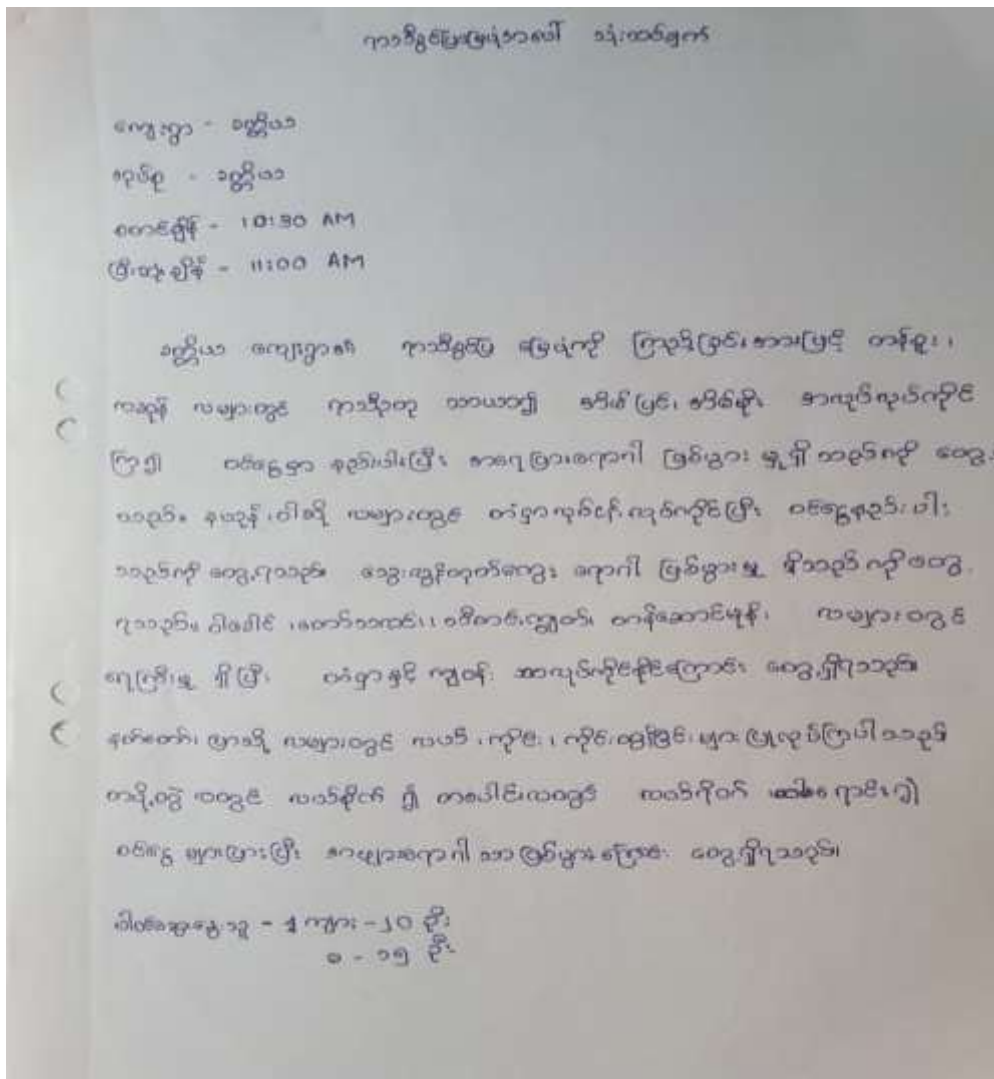 ရာသီခွင်ပြမြေပုံအပေါ် သုံးသပ်ချက်
ကျေးရွာ - ခတ္တိယာ
အုပ်စု - ခတ္တိယာ
စတင်ချိန် - 10:30 AM
ပြီးဆုံးချိန် - 11:00 AM
ခတ္တိယာ ကျေးရွာ၏ ရာသီခွင်ပြ မြေပုံကို ကြည့်ခြင်းအားဖြင့် တန်ခူး၊
ကဆုန် လများတွင် ရာသီဥတု သာယာ၍
ကြ၍ ဝင်ငွေမှာ နည်းပါးပြီး အရေပြားရောဂါ ဖြစ်ပွား မှု ရှိ သည်ကို တွေ့
သည်။ နယုန်၊ ဝါဆို လများတွင် တံငါလုပ်ငန်းလုပ်ကိုင်ပြီး ဝင်ငွေနည်းပါး
သည်ကို တွေ့ရသည်။ သွေးလွန်တုပ်ကွေး ရောဂါ ဖြစ်ပွားမှု ရှိသည်ကိုတွေ့
ရသည်။ ဝါခေါင်၊ တော်သလင်း၊ သီတင်းကျွတ်၊ တန်ဆောင်မုန်း လများတွင်
ရေကြီးမှု ရှိပြီး တံငါနှင့် ကျွဲ အလုပ်ကိုင်နိုင်ကြောင်း တွေ့ရှိရသည်။
နတ်တော်၊ ပြာသို လများတွင် လယ် ကိုင်း၊ ကိုင်း များ ပြုလုပ်ကြပါသည်
တပို့တွဲ လတွင် လယ်စိုက် ၍ တပေါင်းလတွင် ရောင်း၍
ဝင်ငွေ များပြားပြီး ရောဂါ သာ ဖြစ်ပွားကြောင်း တွေ့ရှိရသည်။
ပါဝင်ဆွေးနွေးသူ - ကျား - ၂၀ ဦး
မ - ၁၅ ဦး